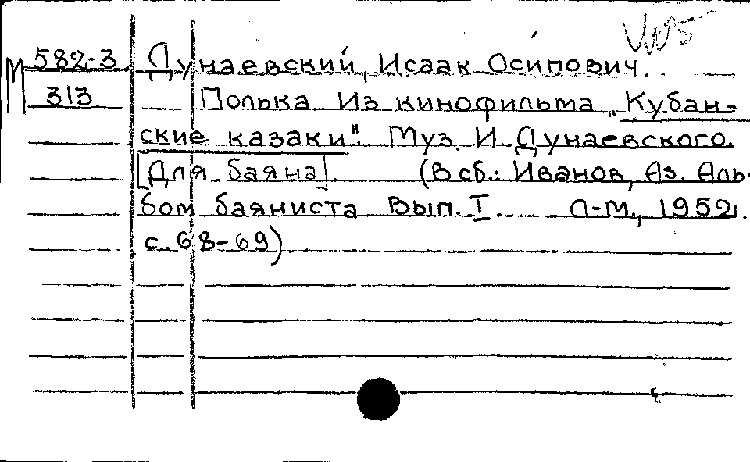 М 582-3 Дунаевский, Исаак Осипович.
313 Полька из кинофильма „Кубан-
ские казаки". Муз. И. Дунаевского.
[Для баяна]. (В сб.: Иванов, Аз. Аль-
бом баяниста Вып. I. Л-М., 1952.
с. 68-69)